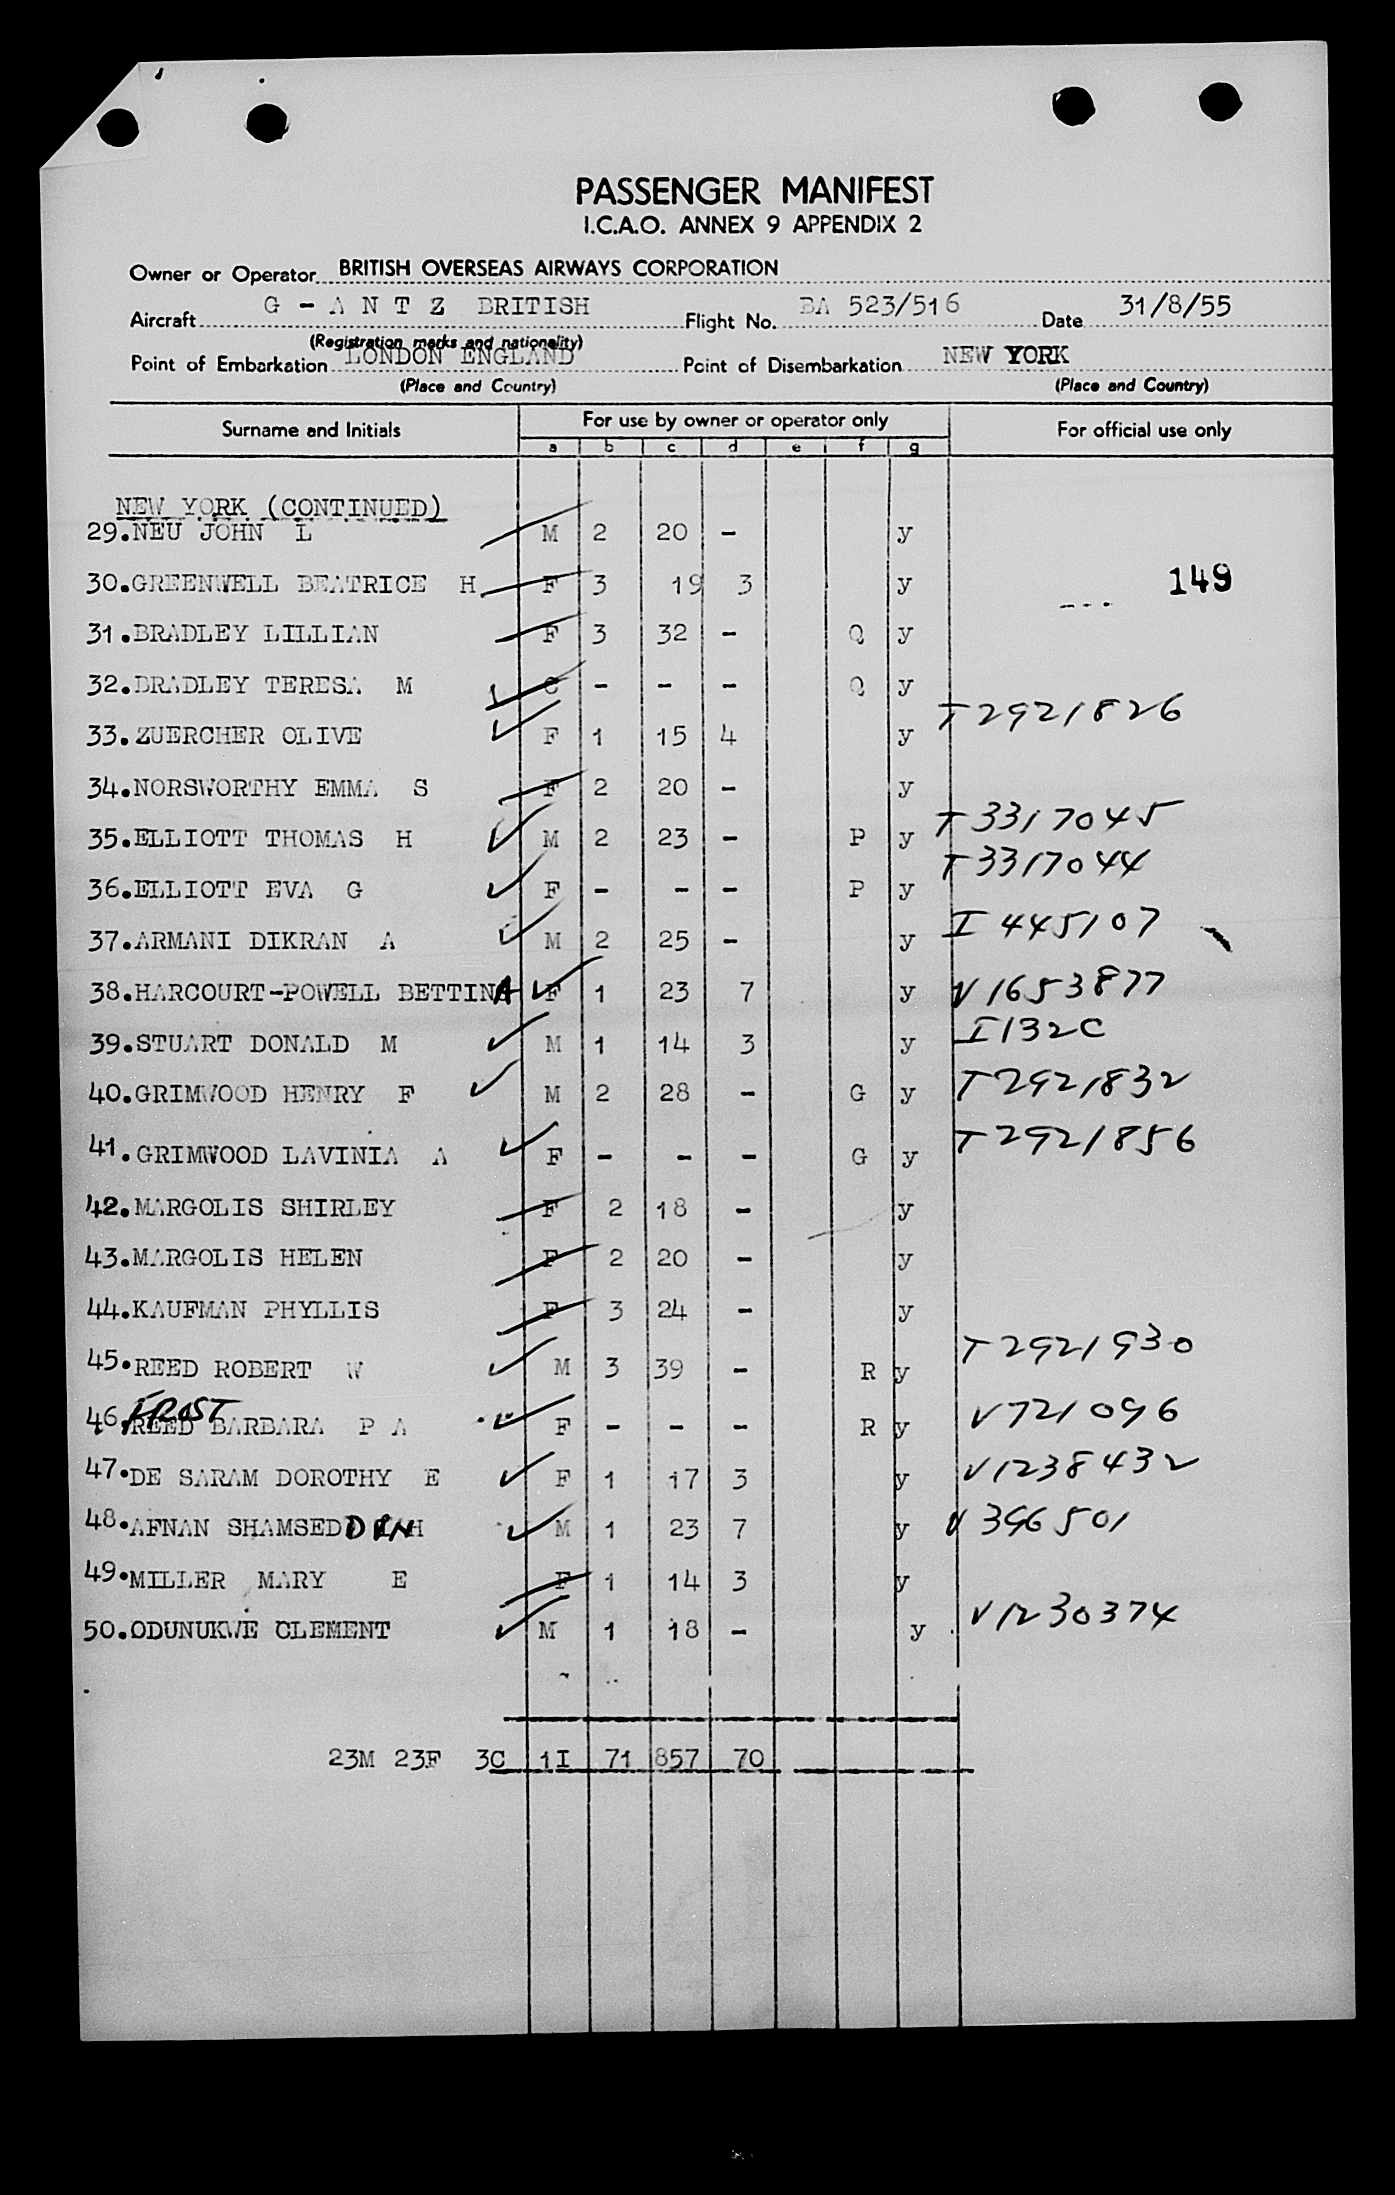 PASSENGER MANIFEST
I.C.A.O. ANNEX 9 APPENDIX 2
Owner or Operator BRITISH OVERSEAS AIRWAYS CORPORATION
Aircraft G - A N T Z BRITISH Flight No. BA 523/516 Date 31/8/55
(Registration marks and nationality)
Point of Embarkation LONDON ENGLAND Point of Disembarkation NEW YORK
(Place and Country) (Place and Country)
Surname and Initials For use by owner or operator only For official use only
a b c d e f g
NEW YORK (CONTINUED)
29. NEU JOHN L M 2 20 - y
30. GREENWELL BEATRICE H F 3 19 3 y 149
31. BRADLEY LILLIAN F 3 32 - Q y
32. BRADLEY TERESA M C - - - Q y
33. ZUERCHER OLIVE F 1 15 4 y T2921826
34. NORSWORTHY EMMA S F 2 20 - y
35. ELLIOTT THOMAS H M 2 23 - P y T3317045
36. ELLIOTT EVA G F - - - P y T3317044
37. ARMANI DIKRAN A M 2 25 - y I 445107
38. HARCOURT-POWELL BETTINA F 1 23 7 y V1653877
39. STUART DONALD M M 1 14 3 y I132C
40. GRIMWOOD HENRY F M 2 28 - G y T2921832
41. GRIMWOOD LAVINIA A F - - - G y T2921856
42. MARGOLIS SHIRLEY F 2 18 - y
43. MARGOLIS HELEN F 2 20 - y
44. KAUFMAN PHYLLIS F 3 24 - y
45. REED ROBERT W M 3 39 - R y T2921930
FROST
46. REED BARBARA P A F - - - R y V721096
47. DE SARAM DOROTHY E F 1 17 3 y V1238432
48. AFNAN SHAMSEDD M 1 23 7 y V396501
49. MILLER MARY E F 1 14 3 y
50. ODUNUKWE CLEMENT M 1 18 - y V1230374
23M 23F 3C 1I 71 857 70